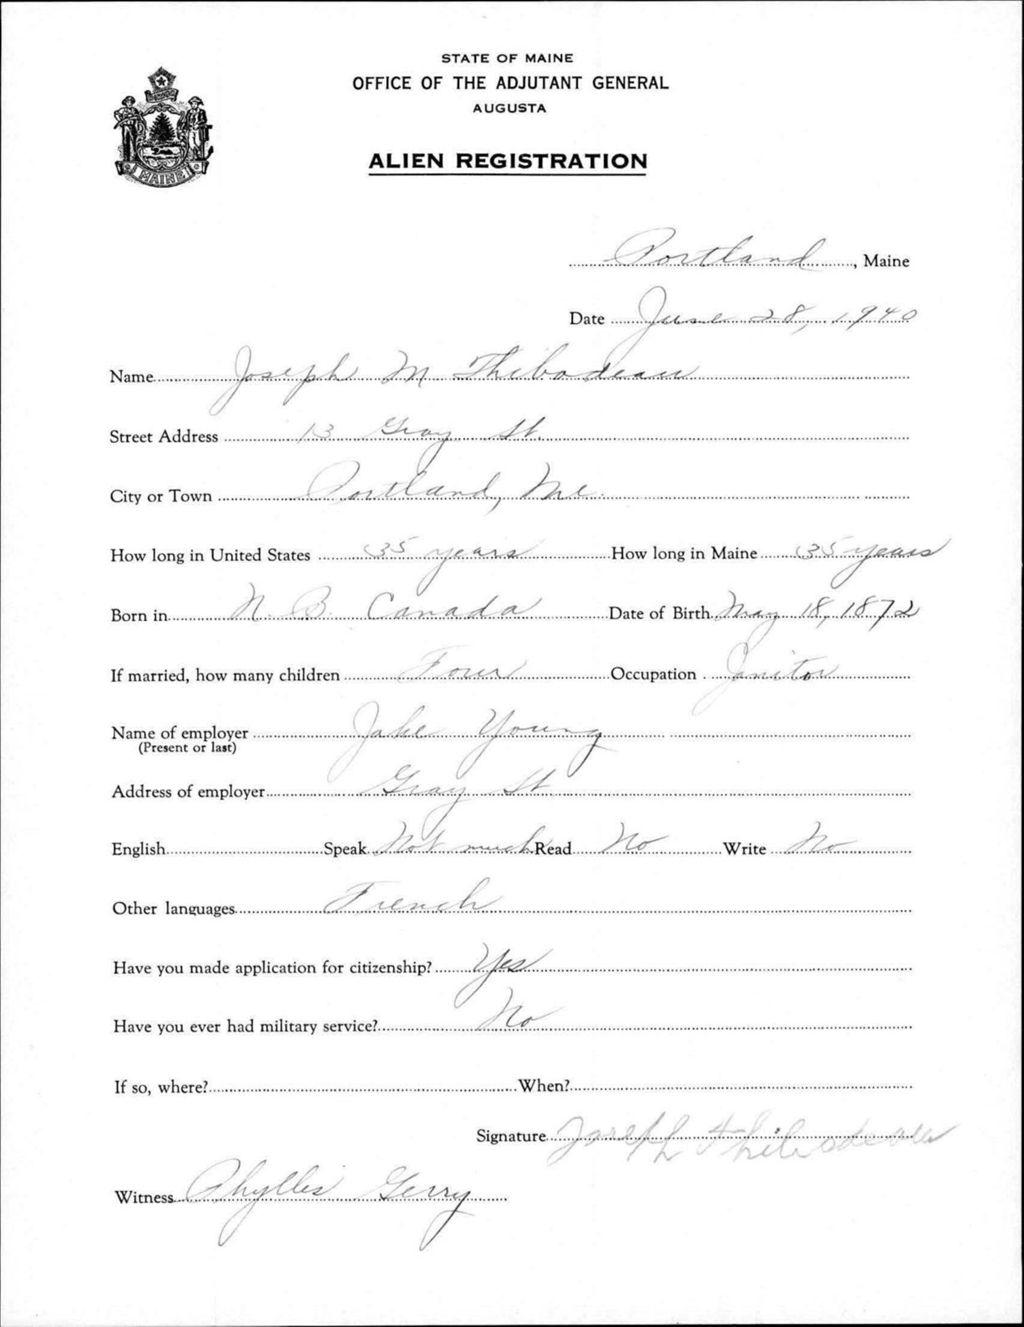 STATE OF MAINE
OFFICE OF THE ADJUTANT GENERAL
AUGUSTA
ALIEN REGISTRATION
MAINE
Portland, Maine
Date June 28, 1940
Name Joseph M Thibodeau
Street Address 13 Gray St.
City or Town Portland, Me.
How long in United States 35 years How long in Maine 35 years
Born in N. B. Canada Date of Birth May 18, 1872
If married, how many children Four Occupation Janitor
Name of employer Jake Young
(Present or last)
Address of employer Gray St
English Speak Not much Read No Write No
Other languages French
Have you made application for citizenship? Yes
Have you ever had military service? No
If so, where? When?
Signature Joseph Thibodeau
Witness Phyllis Gerry